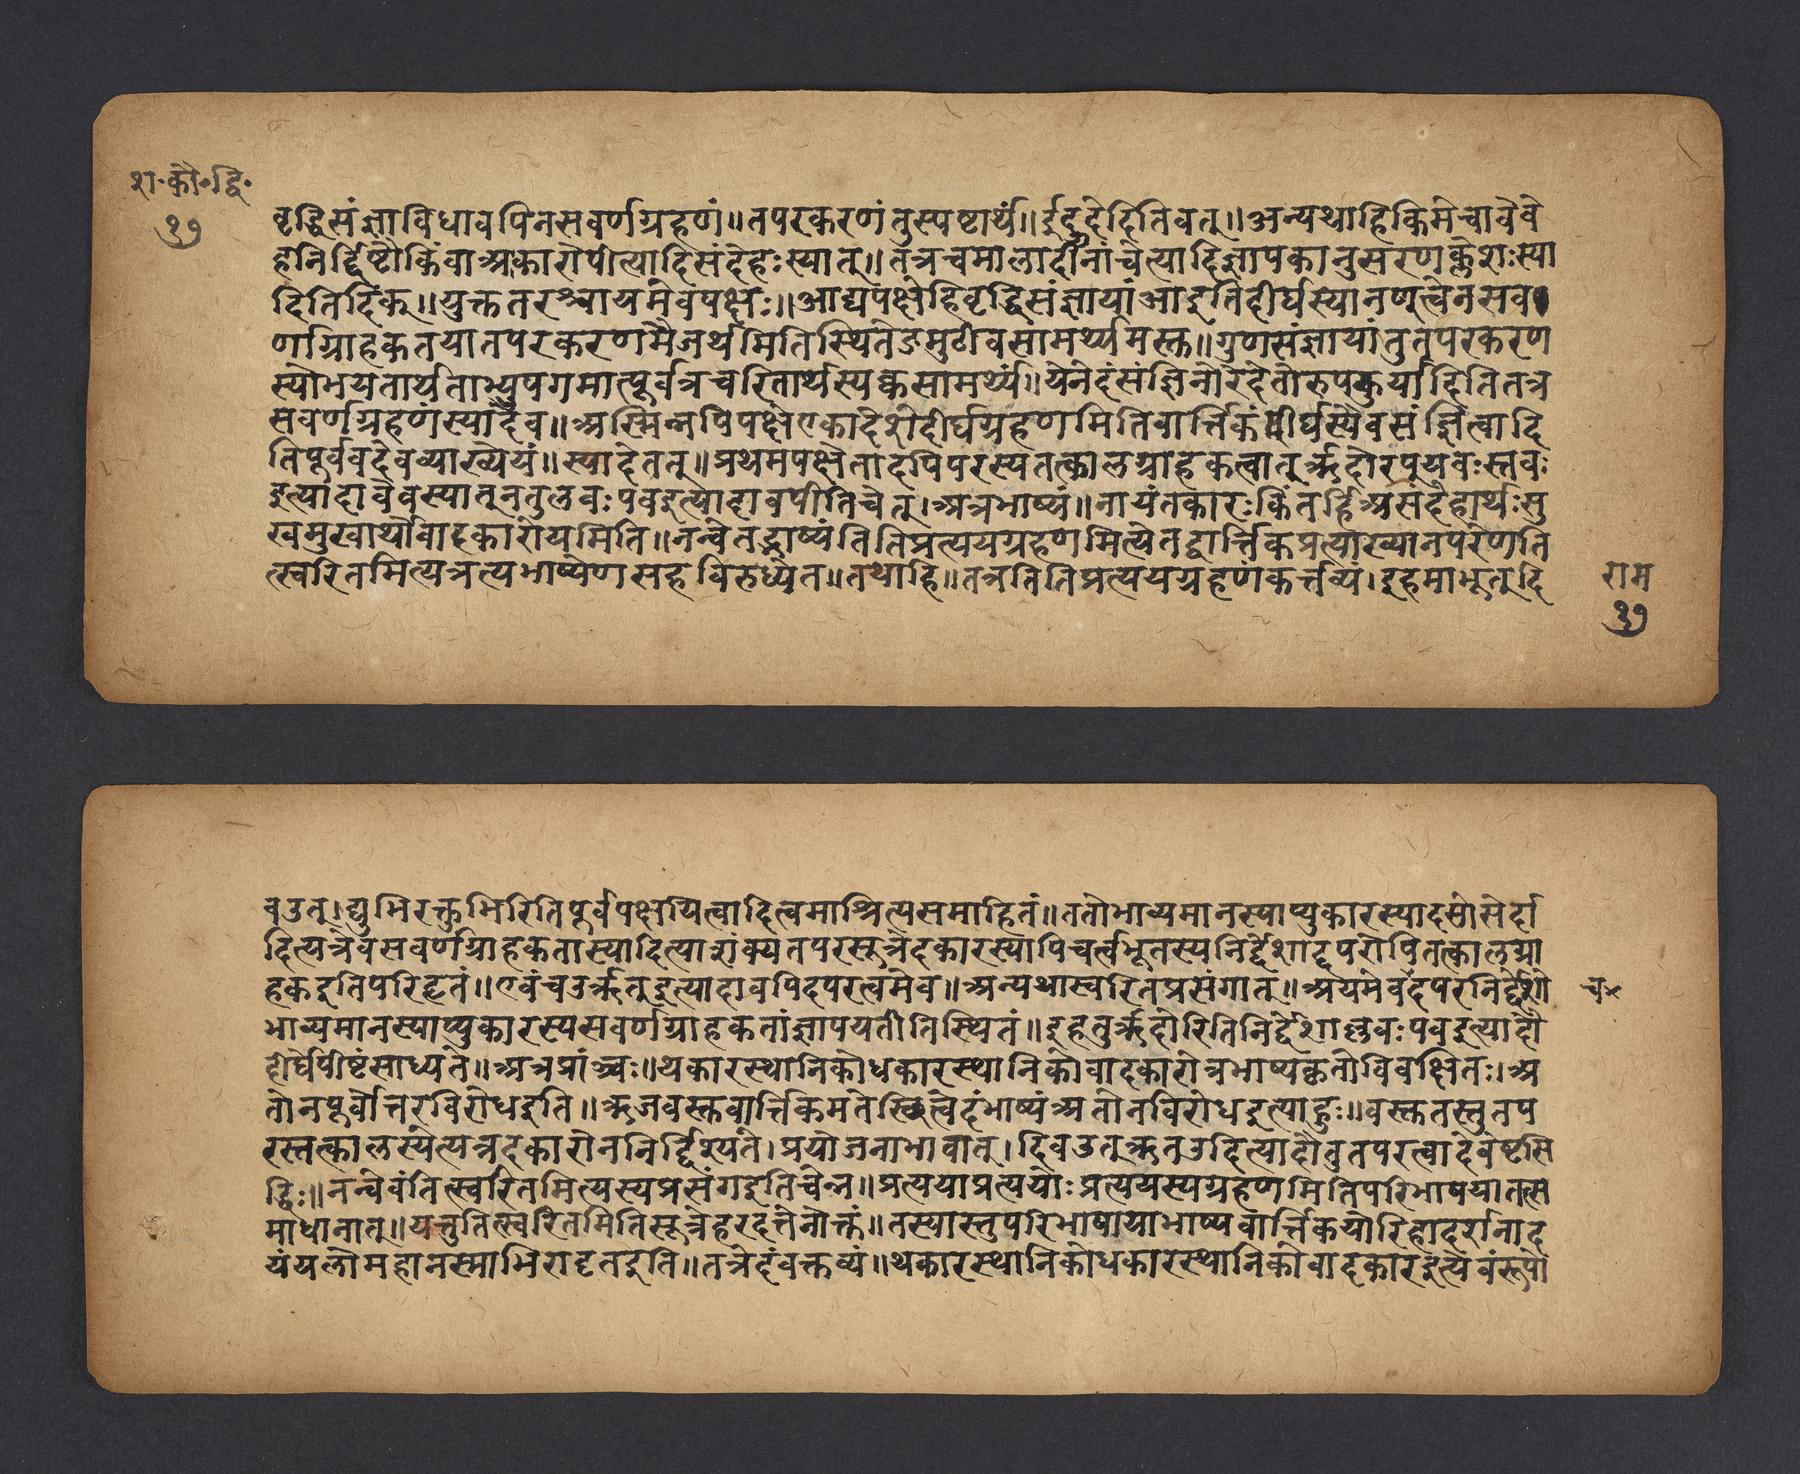 श॰कौ॰द्वि॰
१७
वृद्धिसंज्ञाविधावपिनसवर्णग्रहणं॥तपरकरणंतुस्पष्टार्थं॥ईदूदेदितिवत्॥अन्यथाहिकिमेचावेवे
हनिर्द्दिष्टौकिंवाअकारोपीत्यादिसंदेहःस्यात्॥तत्रचमालादीनांचेत्यादिज्ञापकानुसरणक्लेशःस्या
दितिदिक्॥युक्ततरश्चायमेवपक्षः॥आद्यपक्षेहिवृद्धिसंज्ञायांआइतिदीर्घस्यानणुत्वेनसव
र्णाग्राहकतयातपरकरणमैजर्थमितिस्थितेङमुटीवसामर्थ्यमस्त॥गुणसंज्ञायांतुतपरकरण
स्योभयतार्थताभ्युपगमात्पूर्वत्रचरितार्थस्यक्वसामर्थ्यं॥येनेदंसंज्ञिनोरेदेतोरुपकुर्यादितितत्र
सवर्णग्रहणंस्यादेव॥अस्मिन्नपिपक्षेएकादेशेदीर्घग्रहणमितिवार्त्तिकंदीर्घस्यैवसंज्ञित्वादि
तिपूर्ववदेवव्याख्येयं॥स्यादेतत्॥प्रथमपक्षेतादपिपरस्यतत्कालग्राहकत्वात्ऋदोरप्यवःस्तवः
इत्यादावेवस्यात्नतुलवःपवइत्यादावपीतिचेत्।अत्रभाष्यं॥नायंतकारःकिंतर्हिअसंदेहार्थःमु
खमुखार्थोवादकारोयमिति॥नन्वेतद्भाष्यंतितिप्रत्ययग्रहणमित्येतद्वार्त्तिकप्रत्याख्यानपरेणति
त्स्वरितमित्यत्रत्यभाष्येणसहविरुध्येत॥तथाहि॥तत्रतितिप्रत्ययग्रहणंकर्त्तव्यं।इहमाभूत्दि
राम
१७
वउत्।द्युभिरक्तुभिरितिपूर्वपक्षयित्वादित्वमाश्रित्यसमाहितं॥ततोभाव्यमानस्याप्युकारस्यादसोसेर्दा
दित्यत्रेवसवर्णग्राहकतास्यादित्याशंक्यतपरसूत्रेदकारस्यापिचर्त्वभूतस्यनिर्द्देशाद्दपरोपितत्कालग्रा
हकइतिपरिहृतं॥एवंचउर्ऋत्इत्यादावपिदपरत्वमेव॥अन्यथास्वरितप्रसंगात्॥अयमेवदपरनिर्द्देशो
च×
भाव्यमानस्याप्युकारस्यसवर्णग्राहकतांज्ञापयतीतिस्थितं॥इहतुर्ऋदोरितिनिर्द्देशाल्लवःपवइत्यादौ
दीर्घेपीष्टंसाध्यते॥अत्रप्रांञ्चः॥थकारस्थानिकोधकारस्थानिकोवादकारोत्रभाष्यकृतोविवक्षितः।अ
तोनपूर्वोत्तरविरोधइति॥ऋजवस्तवार्त्तिकमतेस्थित्वेदंभाष्यंअतोनविरोधइत्याहुः॥वस्ततस्तुतप
रस्तत्कालस्येत्यत्रदकारोननिर्द्दिश्यते।प्रयोजनाभावात्।दिवउत्ऋतउदित्यादौतुतपरत्वादेवेष्टसि
द्धिः॥नन्वेवंतित्स्वरितमित्यस्यप्रसंगइतिचेन्न॥प्रत्ययाप्रत्यययोःप्रत्ययस्यग्रहणमितिपरिभाषयातत्स
माधानात्॥यत्तुतित्स्वरितमितिसूत्रेहरदत्तेनोक्तं॥तस्यास्तुपरिभाषायाभाष्यवार्त्तिकयोरिहादर्शनाद
यंयत्नोमहानस्माभिरादृतइति॥तत्रेदंवक्तव्यं॥थकारस्थानिकोधकारस्थानिकोवादकारइत्येवंरूपो